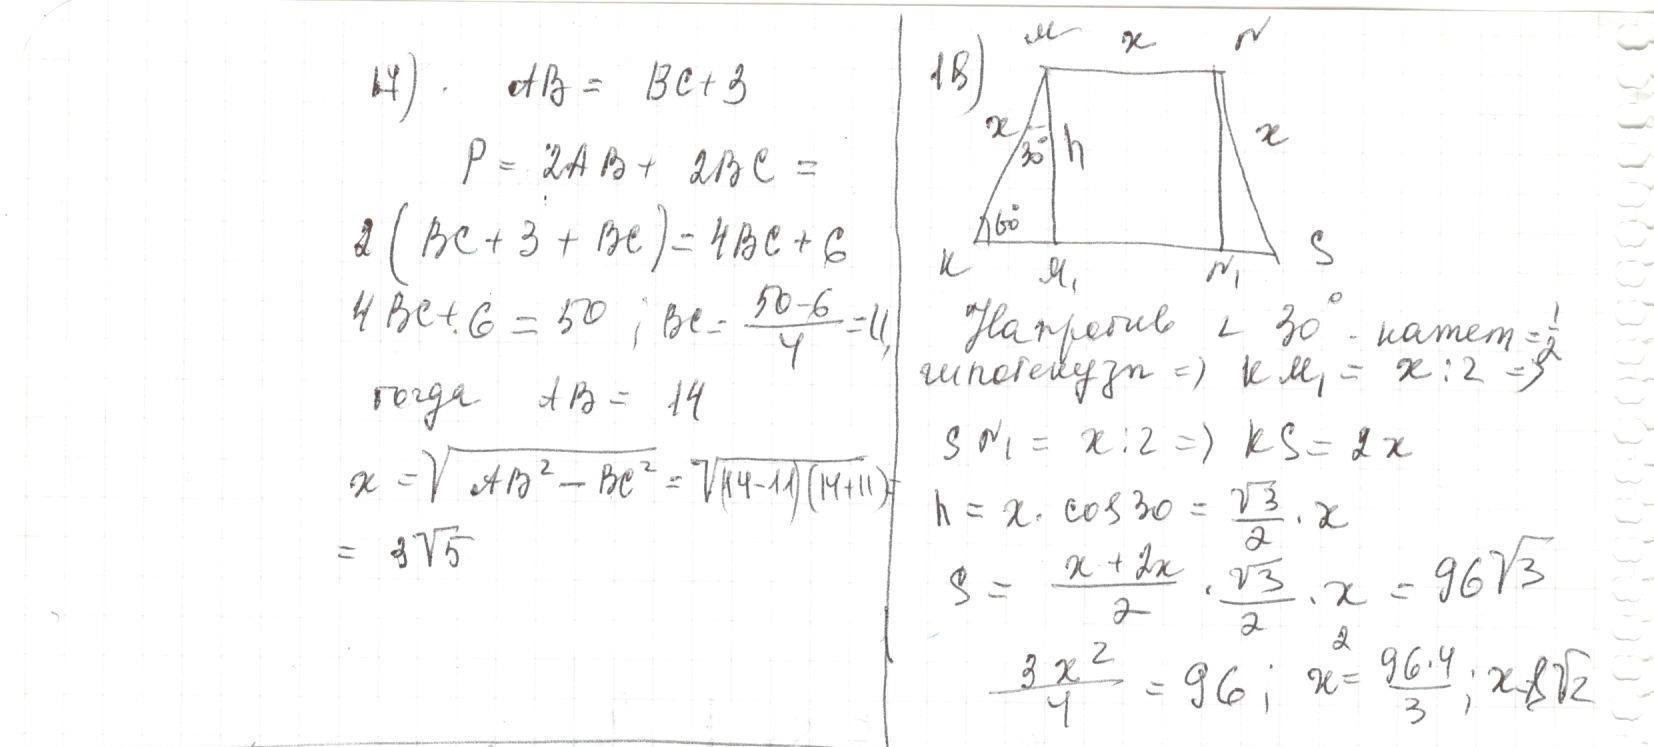 17). AB = BC + 3
P = 2AB + 2BC =
2(BC + 3 + BC) = 4BC + 6
4BC + 6 = 50 ; BC = (50-6)/4 = 11,
тогда AB = 14
x = √(AB² - BC²) = √((14-11)(14+11)) =
= 3√5
18)
M x N
x 30° h x
60°
K M₁ N₁ S
Напротив ∠ 30° - катет = 1/2
гипотенузы => KM₁ = x : 2 =>
SN₁ = x : 2 => KS = 2x
h = x · cos 30 = √3/2 · x
S = (x + 2x)/2 · √3/2 · x = 96√3
3x²/4 = 96 ; x² = 96·4/3 ; x = 8√2